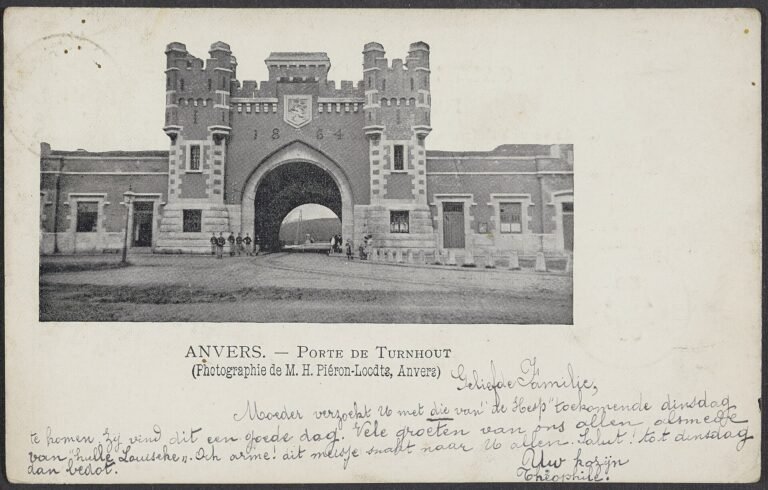 1864
ANVERS. — PORTE DE TURNHOUT
(Photographie de M. H. Piéron-Loodts, Anvers)
Geliefde Familie,
Moeder verzoekt U met die van "de Hesp" toekomende dinsdag
te komen. Zij vind dit een goede dag. Vele groeten van ons allen alsmede
van "hulle Louiseke". Och arme! dit meisje snakt naar U allen. Salut! tot dinsdag
dan bedot.
Uw kozijn
Théophile.